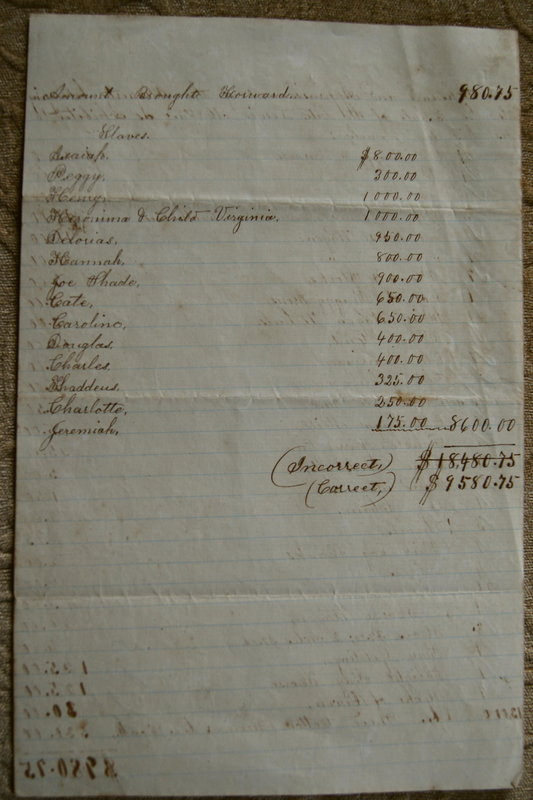 Amount Brought Forward. 980.75
Slaves.
Isaiah. $800.00
Peggy. 300.00
Henry. 1000.00
& Child Virginia. 1000.00
Delorias. 950.00
Hannah. 800.00
Joe Shade. 900.00
Cate. 650.00
Caroline. 650.00
Douglas. 400.00
Charles. 400.00
Thaddeus. 325.00
Charlotte. 250.00
Jeremiah. 175.00 8600.00
(Incorrect,) $18,480.75
(Correct,) $9580.75